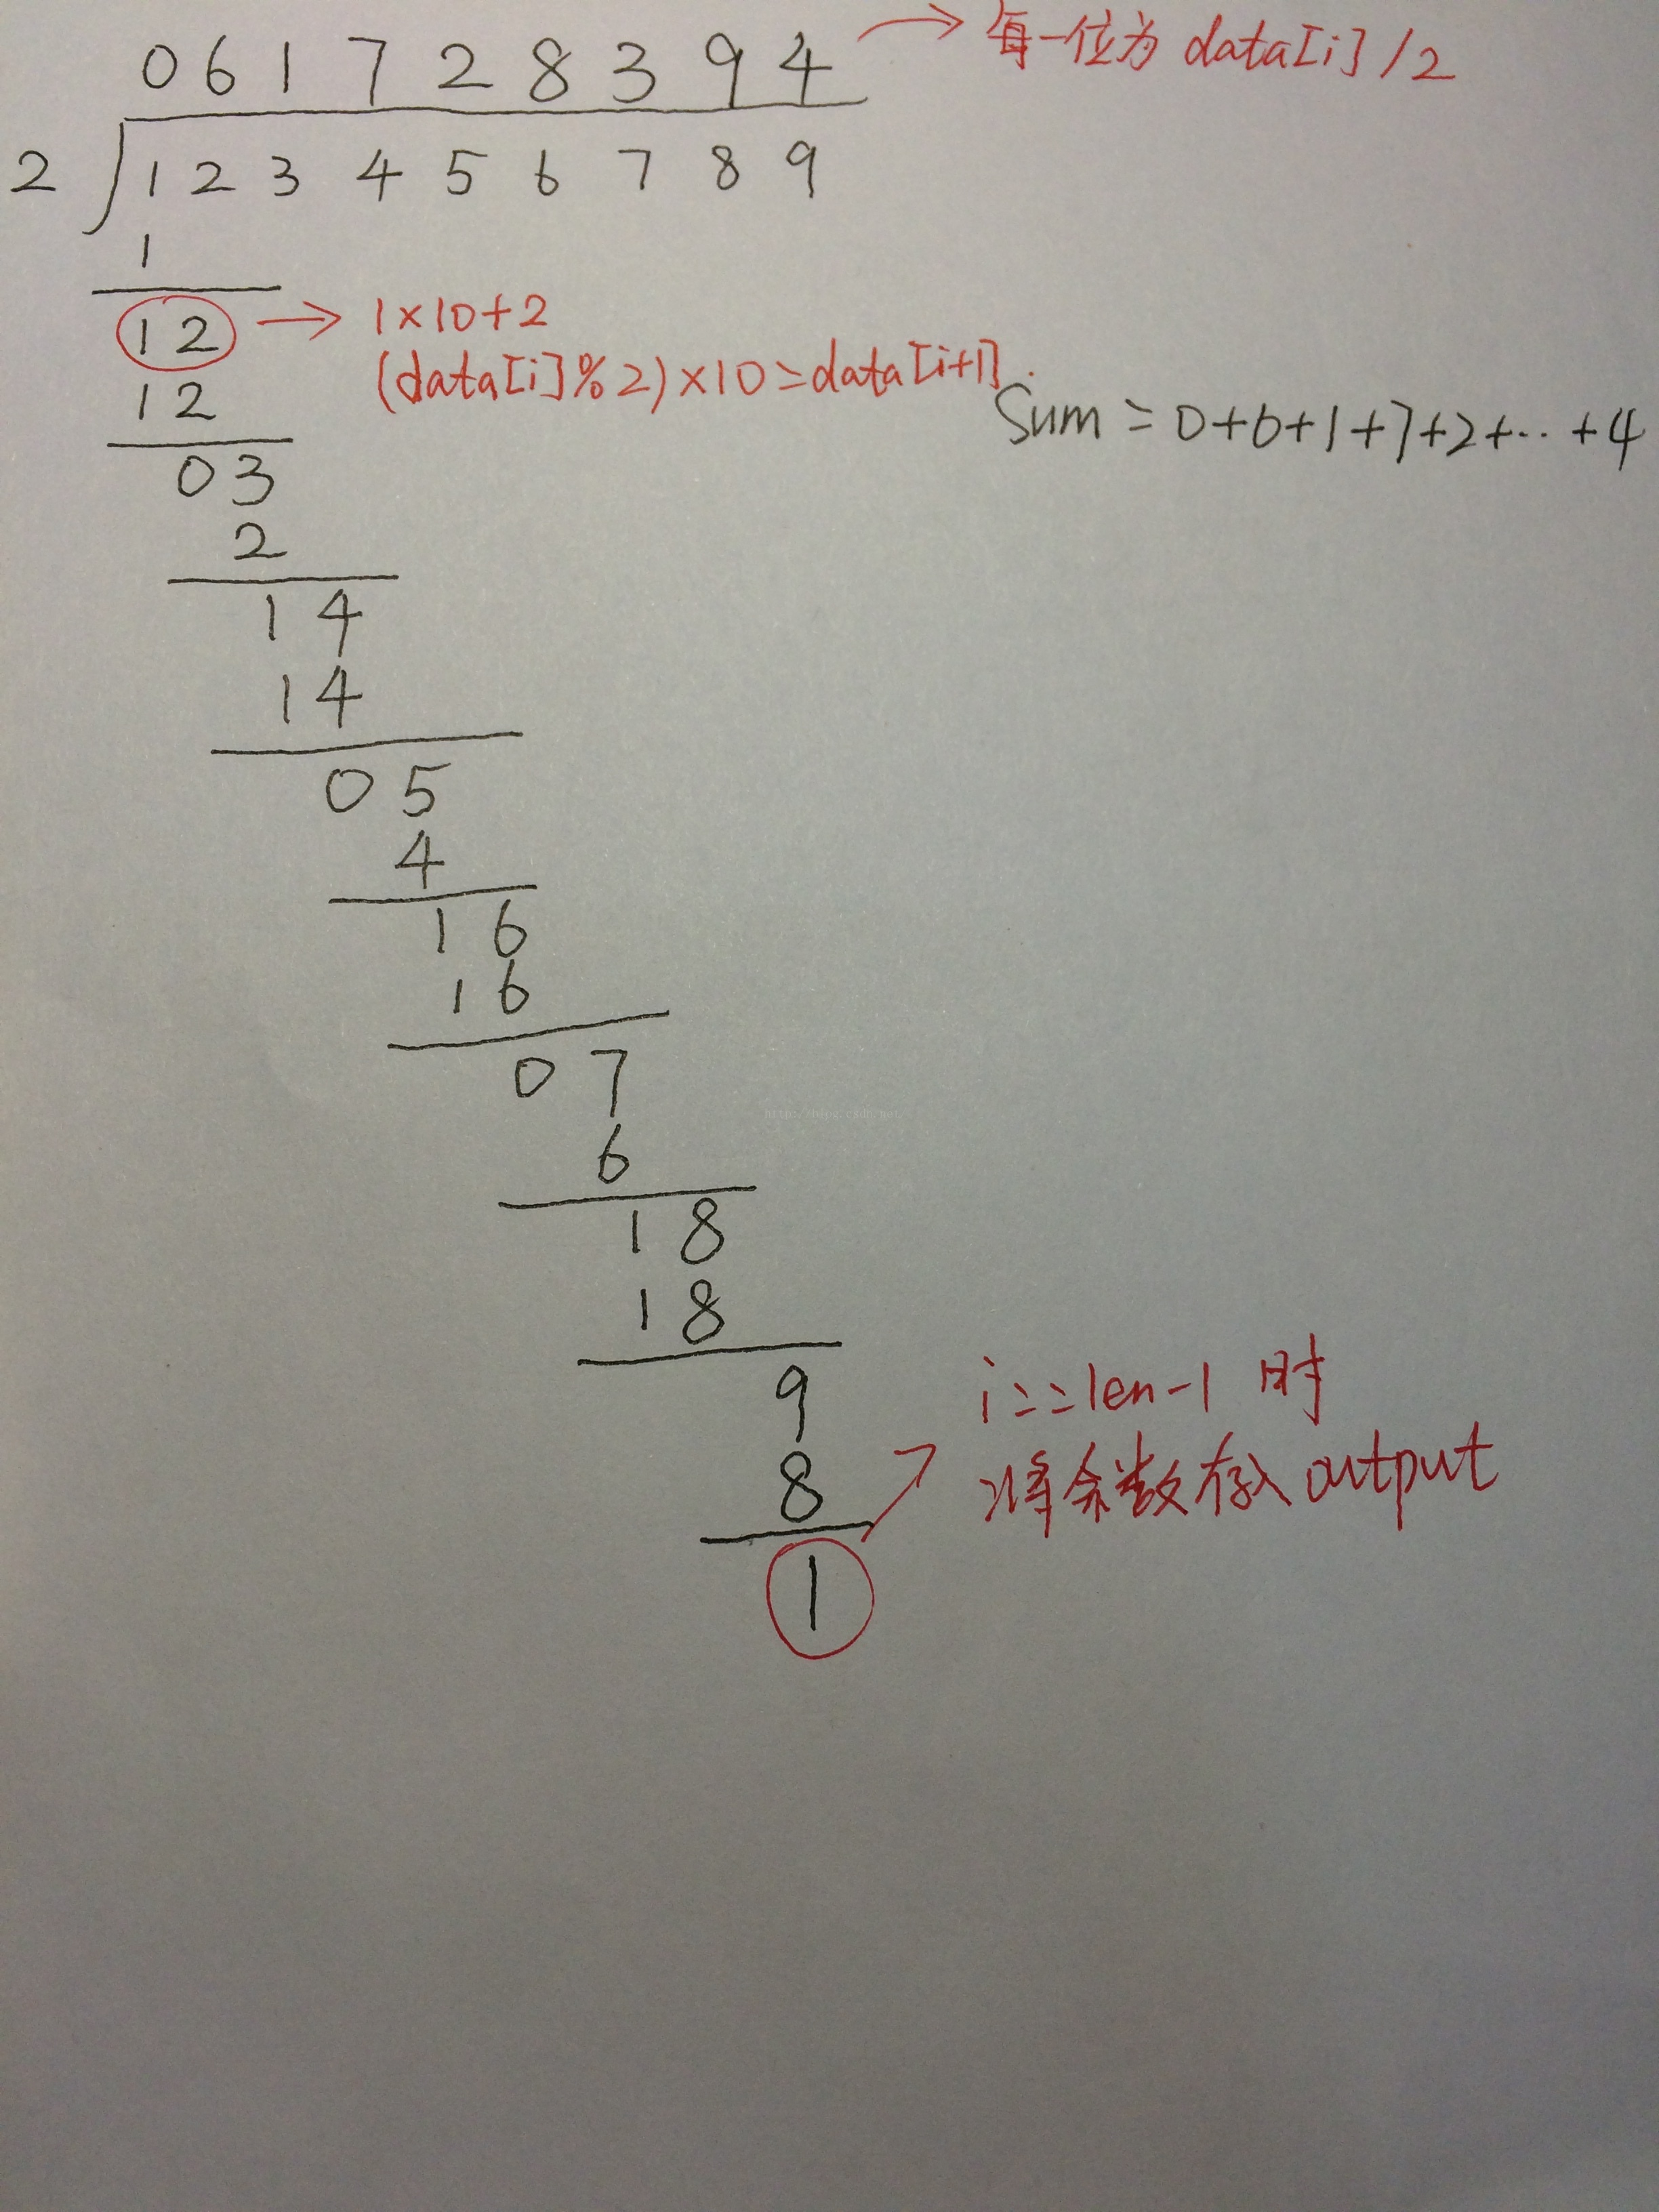 0 6 1 7 2 8 3 9 4 → 每一位为 data[i] / 2
2 1 2 3 4 5 6 7 8 9
1
1 2 → 1×10+2
(data[i]%2)×10=data[i+1].
1 2
Sum = 0+6+1+7+2+… +4
0 3
2
1 4
1 4
0 5
4
1 6
1 6
0 7
http://blog.csdn.net
6
1 8
1 8
9
i==len-1 时
8
将余数存入 output
1